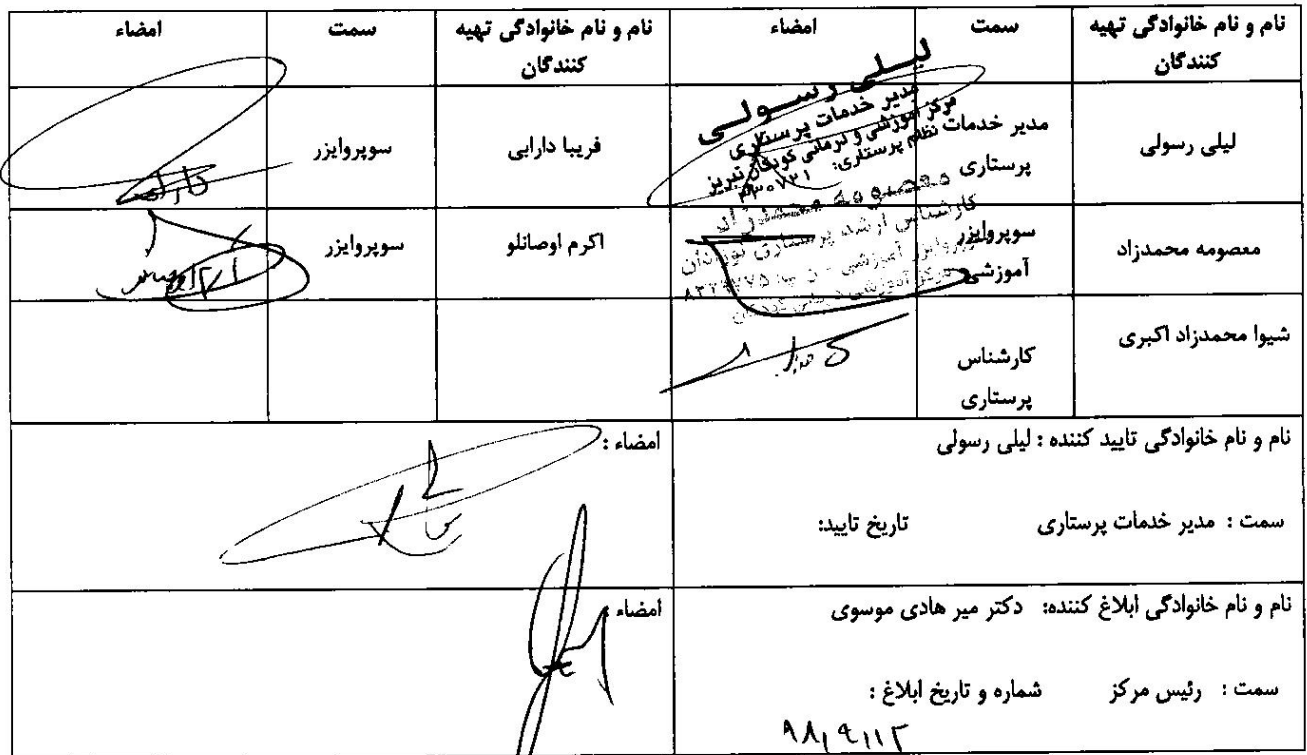 نام و نام خانوادگی تهیه کنندگان سمت امضاء نام و نام خانوادگی تهیه کنندگان سمت امضاء
لیلی رسولی
مدیر خدمات پرستاری
لیلی رسولی
مدیر خدمات پرستاری
مرکز آموزشی و درمانی کودکان تبریز
نظام پرستاری:
فریبا دارابی
سوپروایزر
معصومه محمدزاد
سوپروایزر
آموزشی
معصومه محمدزاد
کارشناس ارشد پرستاری
اکرم اوصانلو
سوپروایزر
شیوا محمدزاد اکبری
کارشناس
پرستاری
نام و نام خانوادگی تایید کننده : لیلی رسولی
سمت : مدیر خدمات پرستاری تاریخ تایید:
امضاء :
نام و نام خانوادگی ابلاغ کننده: دکتر میر هادی موسوی
سمت : رئیس مرکز شماره و تاریخ ابلاغ :
امضاء :